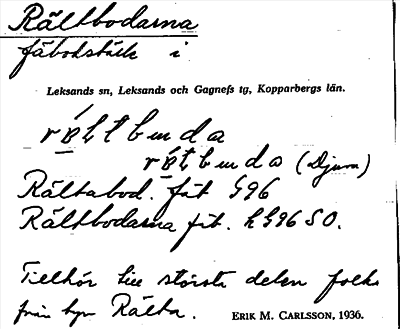 Rältbodarna
fäbodställe i
Leksands sn, Leksands och Gagnefs tg, Kopparbergs län.
(Djura)
Rältabod. fäb. G96
Rältbodarna fäb. hG96 SO.
Tillhör till största delen folk
från byn Rälta.
ERIK M. CARLSSON, 1936.